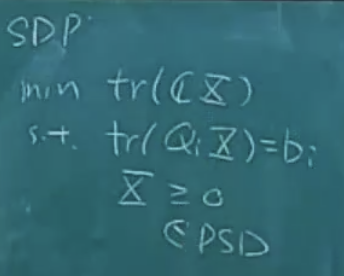 SDP
min tr(CX)
s.t. tr(QiX)=bi
X ≥ 0
∈PSD